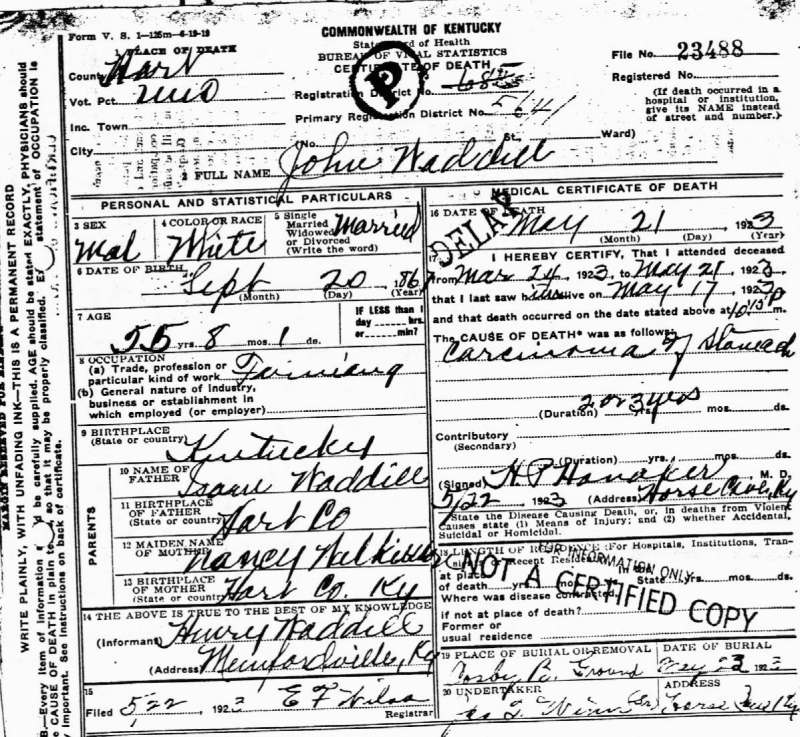 Form V. S. 1-125m-6-19-19
COMMONWEALTH OF KENTUCKY
State Board of Health
BUREAU OF VITAL STATISTICS
CERTIFICATE OF DEATH
File No. 23488
Registered No.
(If death occurred in a
hospital or institution,
give its NAME instead
of street and number.)
1 PLACE OF DEATH
County Hart
Vot. Pct.
Inc. Town
City
Registration District No. 685
Primary Registration District No. 5641
(No. St. Ward)
P
2 FULL NAME John Waddill
PERSONAL AND STATISTICAL PARTICULARS
3 SEX
Mal
4 COLOR OR RACE
White
5 Single
Married
Widowed
or Divorced
(Write the word)
Married
6 DATE OF BIRTH
Sept 20 186
(Month) (Day) (Year)
7 AGE
55 yrs. 8 mos. 1 ds.
IF LESS than 1
day hrs.
or min?
8 OCCUPATION
(a) Trade, profession or
particular kind of work
(b) General nature of industry,
business or establishment in
which employed (or employer)
9 BIRTHPLACE
(State or country)
Kentucky
PARENTS
10 NAME OF
FATHER
Waddill
11 BIRTHPLACE
OF FATHER
(State or country)
Hart Co
12 MAIDEN NAME
OF MOTHER
Nancy
13 BIRTHPLACE
OF MOTHER
(State or country)
Hart Co. Ky
14 THE ABOVE IS TRUE TO THE BEST OF MY KNOWLEDGE
(Informant) Henry Waddill
(Address) Munfordville, Ky
15
Filed 5/22, 1923 E F Wilson
Registrar
MEDICAL CERTIFICATE OF DEATH
DELAY
16 DATE OF DEATH
May 21 1923
(Month) (Day) (Year)
17 I HEREBY CERTIFY, That I attended deceased
from Mar 24 1923, to May 21, 1923,
that I last saw him alive on May 17, 1923
and that death occurred on the date stated above at 10:15 P m.
The CAUSE OF DEATH* was as follows:
Carcinoma of Stomach
(Duration) 2 or 3 yrs mos. ds.
Contributory
(Secondary)
(Duration) yrs. mos. ds.
(Signed) H P Honaker M. D.
5/22 1923 (Address) Horse Cave, Ky
*State the Disease Causing Death, or, in deaths from Violent
Causes state (1) Means of Injury; and (2) whether Accidental,
Suicidal or Homicidal.
18 LENGTH OF RESIDENCE (For Hospitals, Institutions, Tran-
sients or Recent Residents)
at place
of death yrs. mos. In the State yrs. mos. ds.
Where was disease contracted,
if not at place of death?
Former or
usual residence
FOR INFORMATION ONLY
NOT A CERTIFIED COPY
19 PLACE OF BURIAL OR REMOVAL
Ground
DATE OF BURIAL
May 23 192
20 UNDERTAKER
Winn
ADDRESS
Horse Cave Ky
WRITE PLAINLY, WITH UNFADING INK—THIS IS A PERMANENT RECORD
B.—Every item of information should be carefully supplied. AGE should be stated EXACTLY. PHYSICIANS should
CAUSE OF DEATH in plain terms, so that it may be properly classified. Exact statement of OCCUPATION is
important. See instructions on back of certificate.